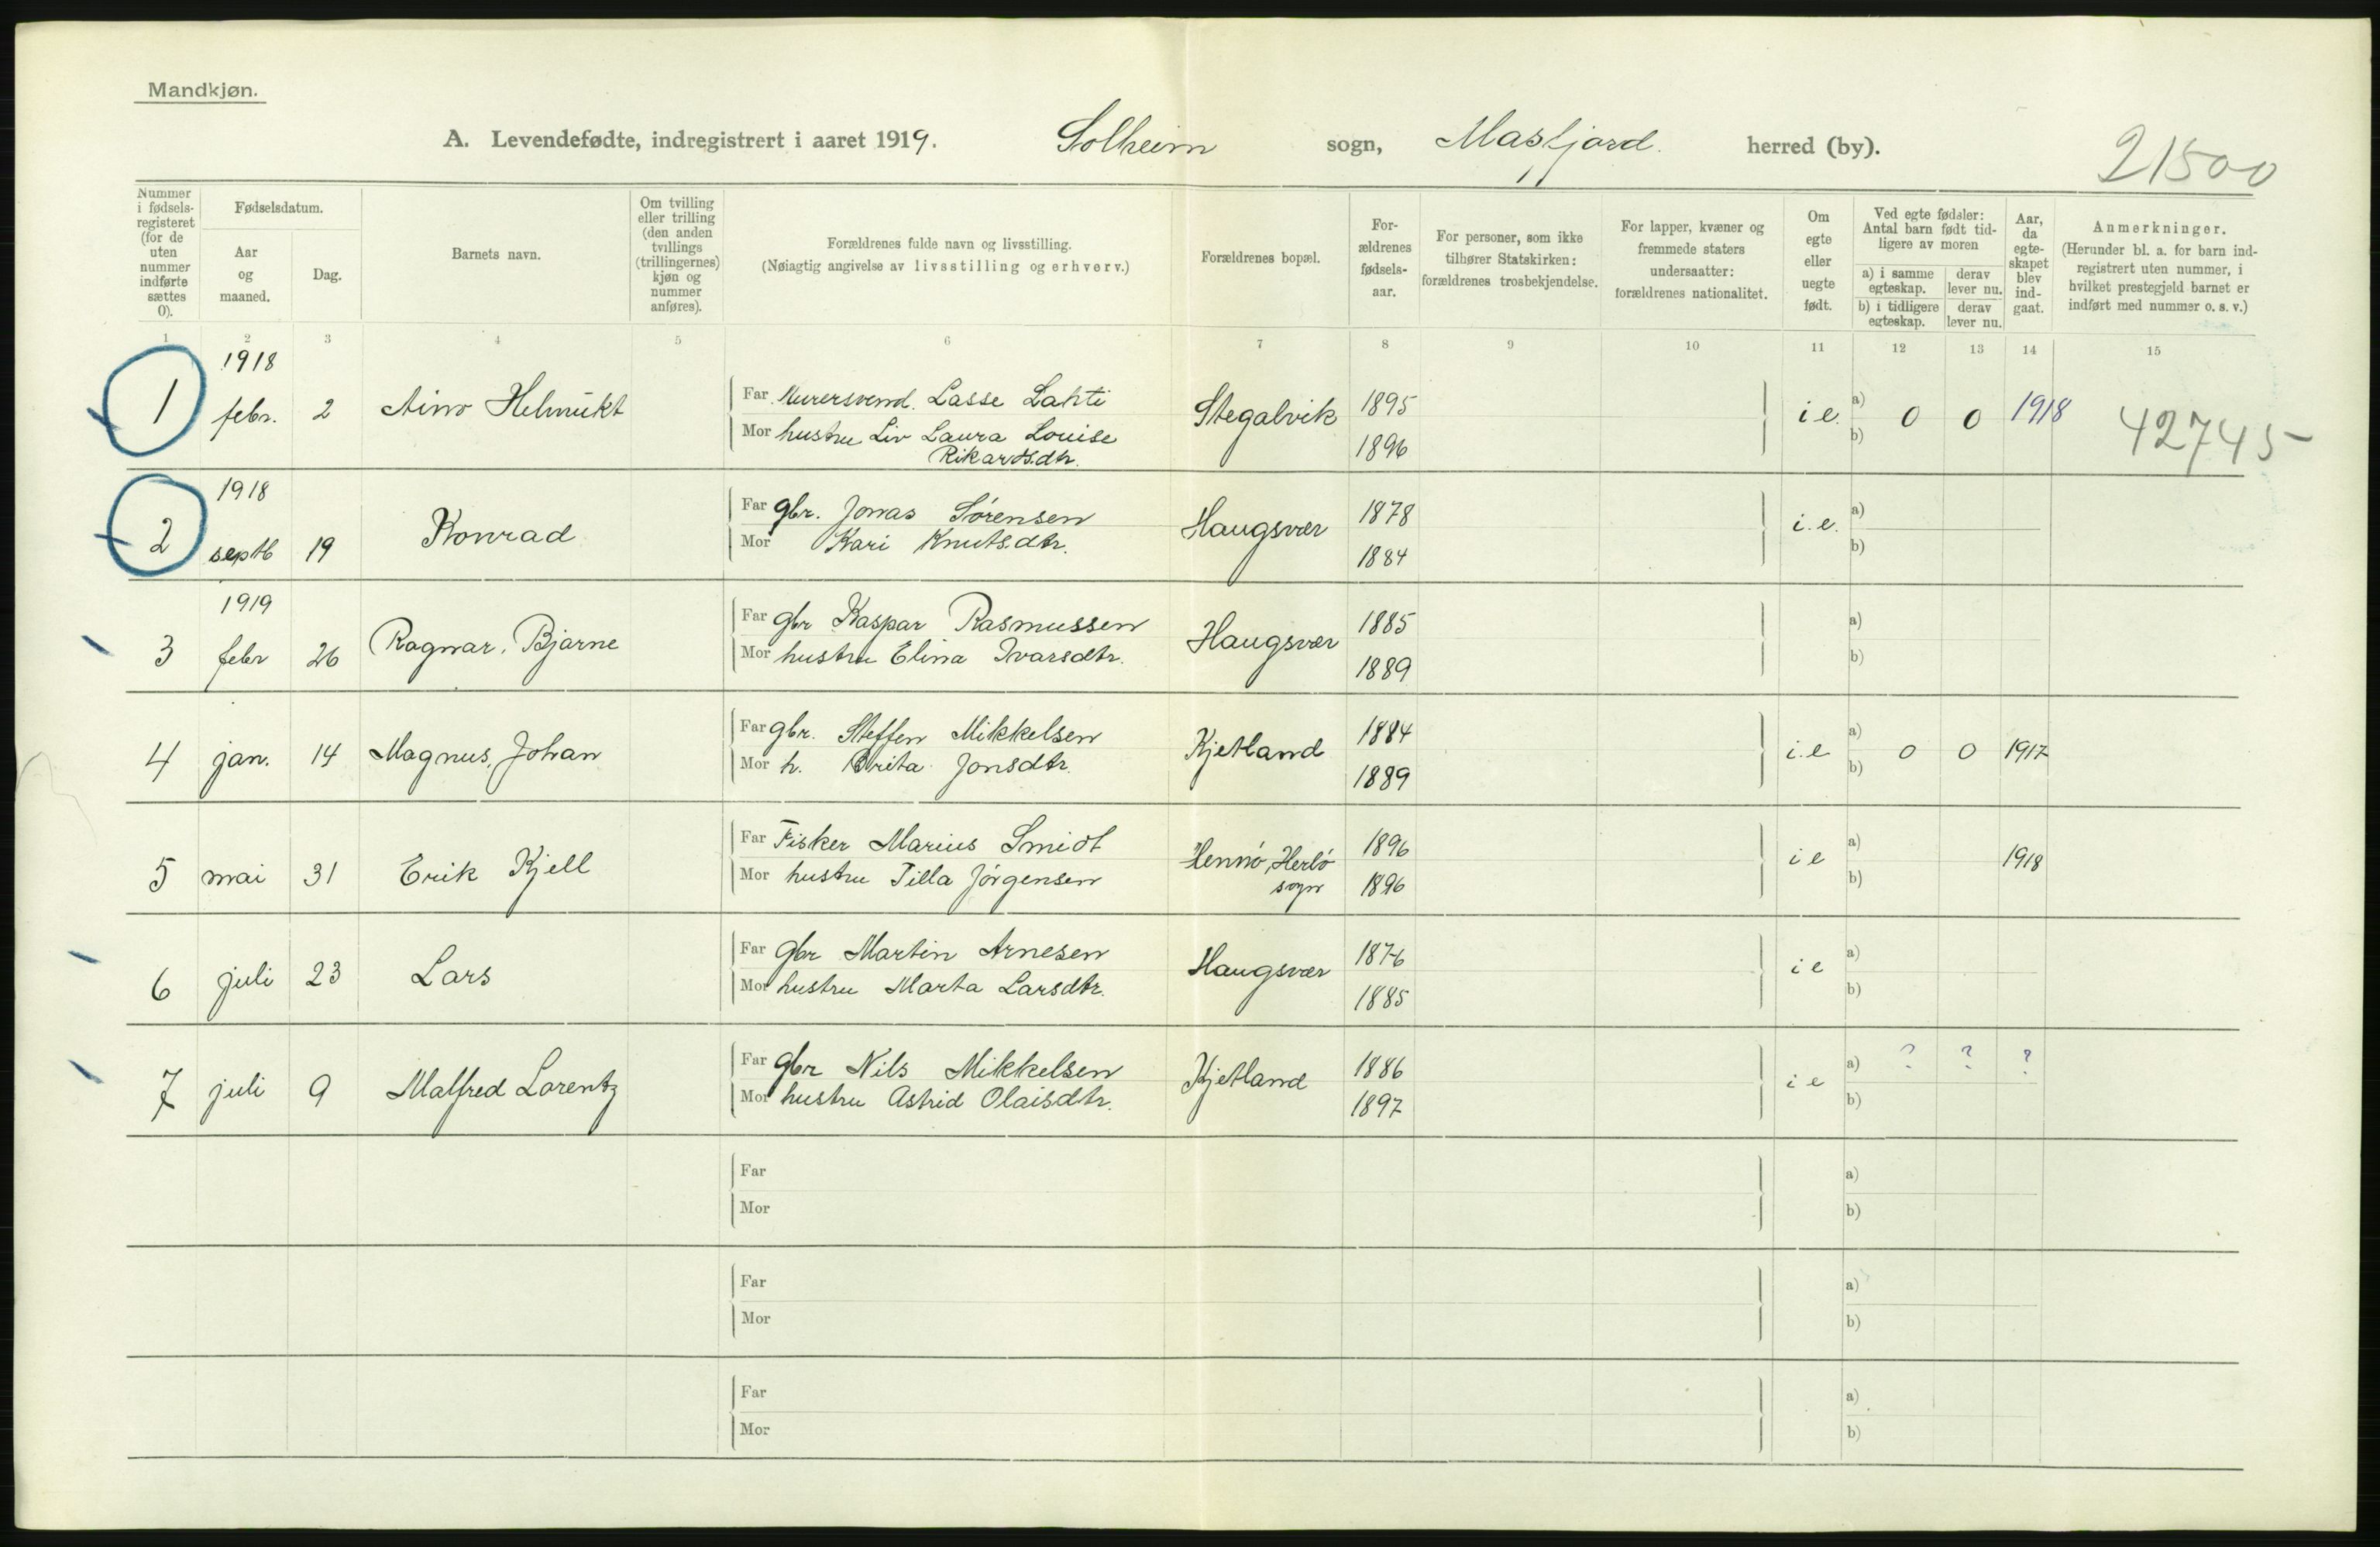 Mandkjøn.
A. Levendefødte, indregistrert i aaret 1919. Solheim sogn, Masfjord. herred (by).
21500
Nummer i fødsels-registeret (for de uten nummer indførte sættes 0).
Fødselsdatum.
Aar og maaned.
Dag.
Barnets navn.
Om tvilling eller trilling (den anden tvillings (trillingernes) kjøn og nummer anføres).
Forældrenes fulde navn og livsstilling.
(Nøiagtig angivelse av livsstilling og erhverv.)
Forældrenes bopæl.
For-ældrenes fødsels-aar.
For personer, som ikke tilhører Statskirken: forældrenes trosbekjendelse.
For lapper, kvæner og fremmede staters undersaatter: forældrenes nationalitet.
Om egte eller uegte født.
Ved egte fødsler: Antal barn født tid-ligere av moren
a) i samme egteskap.
derav lever nu.
b) i tidligere egteskap.
derav lever nu.
Aar, da egte-skapet blev ind-gaat.
Anmerkninger.
(Herunder bl. a. for barn ind-registrert uten nummer, i hvilket prestegjeld barnet er indført med nummer o. s. v.)
1 2 3 4 5 6 7 8 9 10 11 12 13 14 15
1918
1 febr. 2 Aino Helmukt
Far Murersvend. Lasse Lahti Stegalvik 1895 i e. a) 0 0 1918
Mor hustru Liv Laura Louise 1896 b) 42745
Rikardsdtr.
1918
2 septb 19 Konrad
Far gbr. Jonas Sørensen Haugsvær 1878 i. e. a)
Mor Kari Knutsdtr. 1884 b)
1919
3 febr 26 Ragnar, Bjarne
Far gbr Kaspar Rasmussen Haugsvær 1885 a)
Mor hustru Elina Ivarsdtr. 1889 b)
4 jan. 14 Magnus, Johan
Far gbr. Steffen Mikkelsen Kjetland 1884 i. e a) 0 0 1917
Mor h. Brita Jonsdtr. 1889 b)
5 mai 31 Erik Kjell
Far Fisker Marius Smidt Hennö, Herlö 1896 i e a) 1918
Mor hustru Tilla Jörgensen sogn 1896 b)
6 juli 23 Lars
Far gbr Martin Arnesen Haugsvær 1876 i e a)
Mor hustru Marta Larsdtr. 1885 b)
7 juli 9 Malfred Lorentz
Far gbr Nils Mikkelsen Kjetland 1886 i e a) ? ? ?
Mor hustru Astrid Olaisdtr. 1897 b)
Far a)
Mor b)
Far a)
Mor b)
Far a)
Mor b)